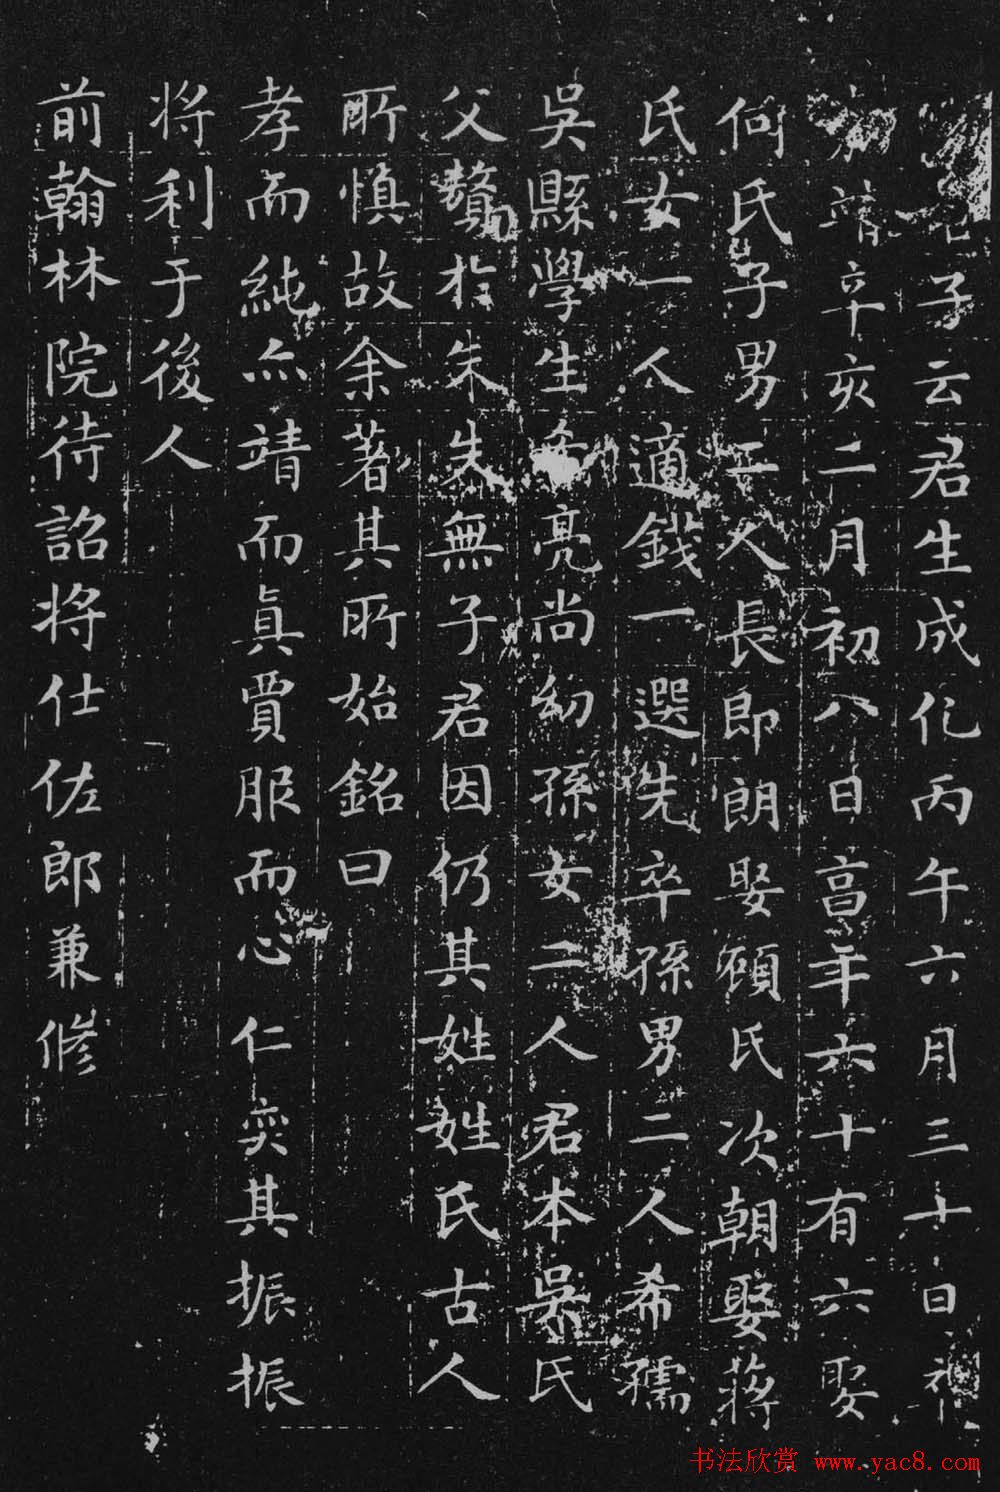 子云君生成化丙午六月三十日卒
靖辛亥二月初八日亯年六十有六娶
何氏子男二人長即朗娶顧氏次朝娶蔣
氏女一人適錢一選先卒孫男二人希孺
吳縣學生希亮尚幼孫女二人君本吳氏
父贅於朱朱無子君因仍其姓姓氏古人
所慎故余著其所始銘曰
孝而純亦靖而真賈服而心仁奕其振振
将利于後人
前翰林院待詔将仕佐郎兼修
书法欣赏 www.yac8.com